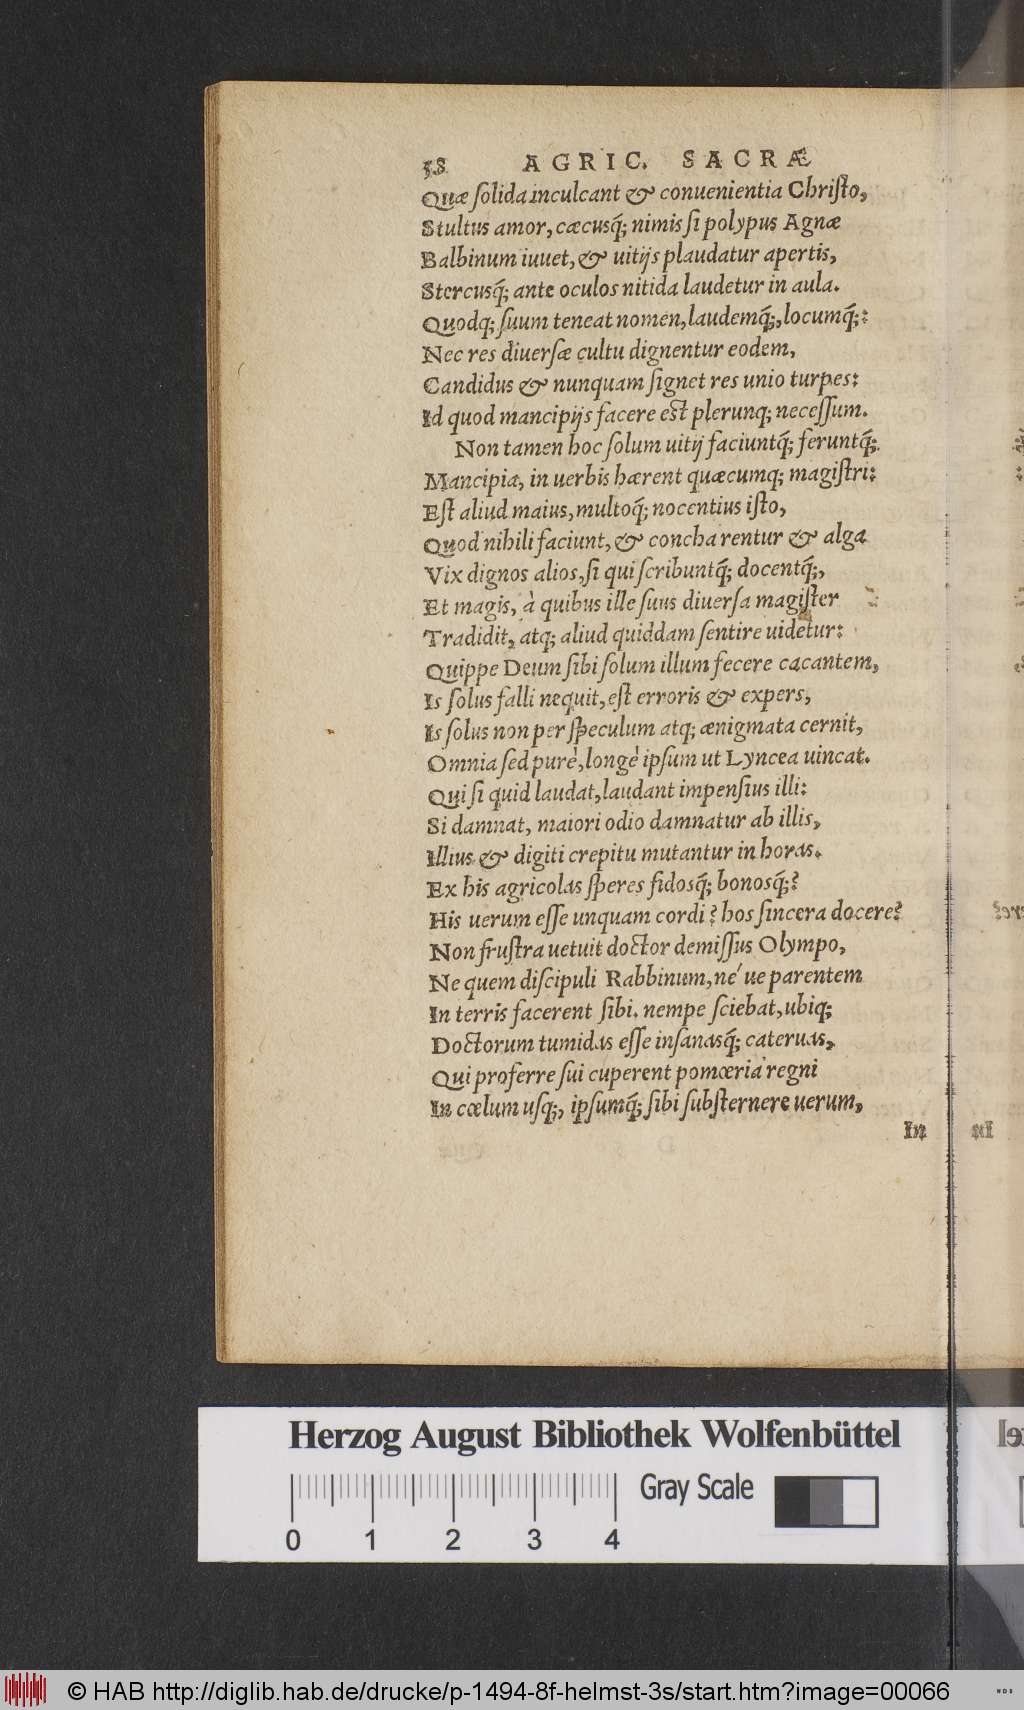 58 AGRIC. SACRÆ
Quæ ſolida inculcant & conuenientia Chriſto,
Stultus amor, cæcusq́; nimis ſi polypus Agnæ
Balbinum iuuet, & uitijs plaudatur apertis,
Stercusq́; ante oculos nitida laudetur in aula.
Quodq; ſuum teneat nomen, laudemq́;, locumq́;:
Nec res diuerſæ cultu dignentur eodem,
Candidus & nunquam ſignet res unio turpes:
Id quod mancipijs facere eſt plerunq; neceſſum.
Non tamen hoc ſolum uitij faciuntq́; feruntq́;
Mancipia, in uerbis hærent quæcumq; magiſtri:
Eſt aliud maius, multoq́; nocentius iſto,
Quod nihili faciunt, & concha rentur & alga
Vix dignos alios, ſi qui ſcribuntq́; docentq́;,
Et magis, à quibus ille ſuus diuerſa magiſter
Tradidit, atq; aliud quiddam ſentire uidetur:
Quippe Deum ſibi ſolum illum fecere cacantem,
Is ſolus falli nequit, eſt erroris & expers,
Is ſolus non per ſpeculum atq; ænigmata cernit,
Omnia ſed purè, longè ipſum ut Lyncea uincat.
Qui ſi quid laudat, laudant impenſius illi:
Si damnat, maiori odio damnatur ab illis,
Illius & digiti crepitu mutantur in horas.
Ex his agricolas ſperes fidosq́; bonosq́;?
His uerum eſſe unquam cordi? hos ſincera docere?
Non fruſtra uetuit doctor demiſſus Olympo,
Ne quem diſcipuli Rabbinum, né ue parentem
In terris facerent ſibi. nempe ſciebat, ubiq;
Doctorum tumidas eſſe inſanasq́; cateruas,
Qui proferre ſui cuperent pomœria regni
In cœlum uſq;, ipſumq́; ſibi ſubſternere uerum,
In
Herzog August Bibliothek Wolfenbüttel
Gray Scale
0 1 2 3 4
© HAB http://diglib.hab.de/drucke/p-1494-8f-helmst-3s/start.htm?image=00066